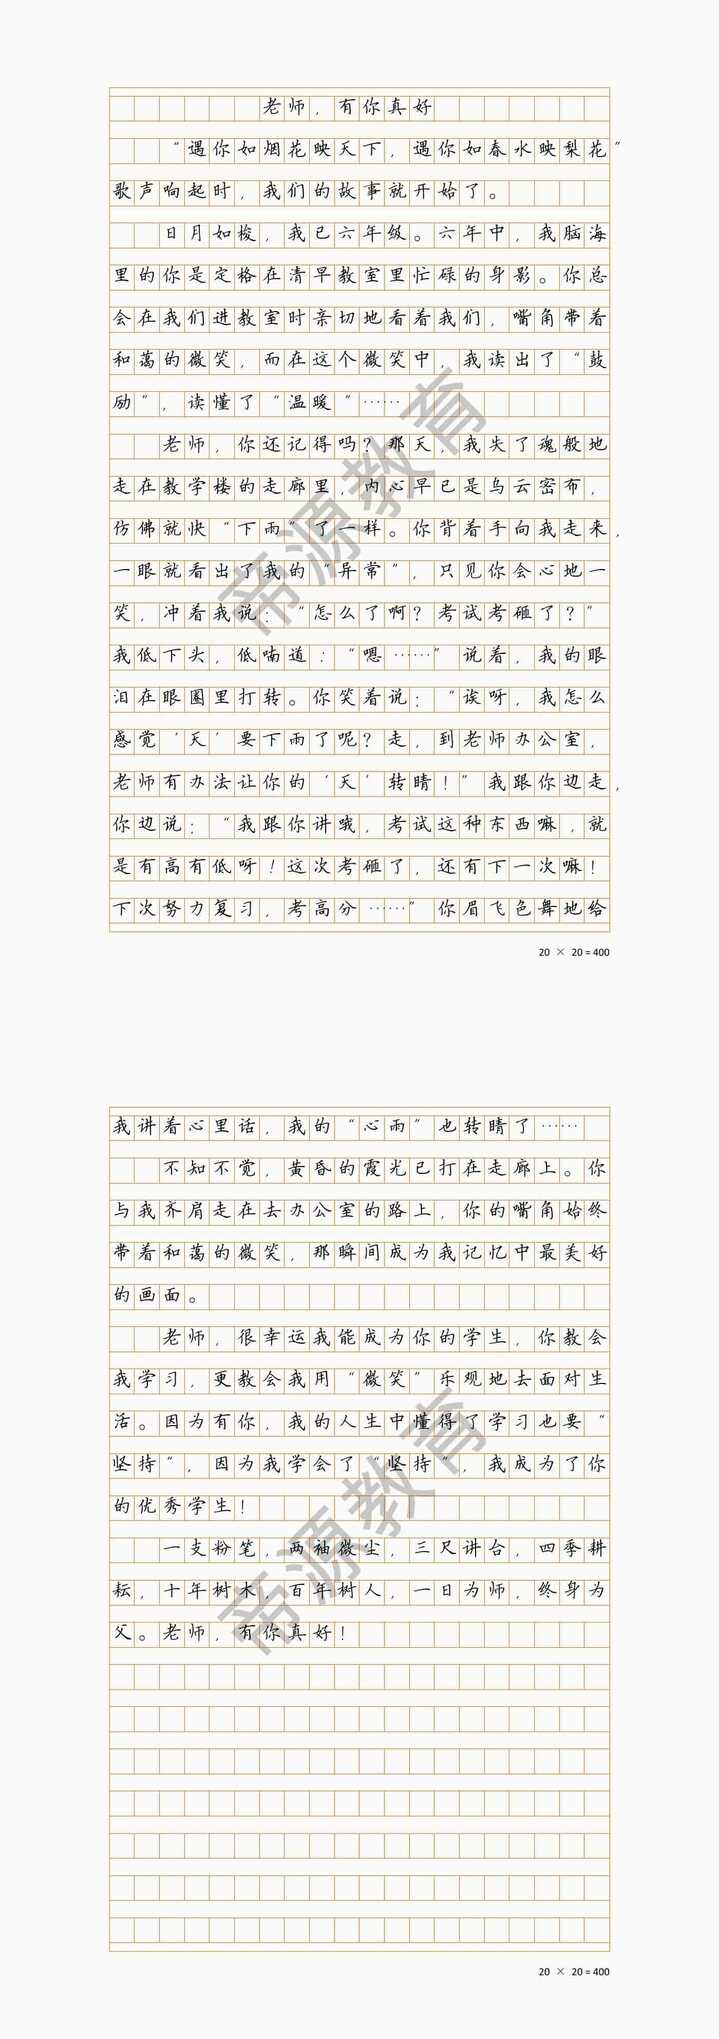 老师，有你真好
“遇你如烟花映天下，遇你如春水映梨花”
歌声响起时，我们的故事就开始了。
日月如梭，我已六年级。六年中，我脑海
里的你是定格在清早教室里忙碌的身影。你总
会在我们进教室时亲切地看着我们，嘴角带着
和蔼的微笑，而在这个微笑中，我读出了“鼓
励”，读懂了“温暖”……
老师，你还记得吗？那天，我失了魂般地
走在教学楼的走廊里，内心早已是乌云密布，
仿佛就快“下雨”了一样。你背着手向我走来，
一眼就看出了我的“异常”，只见你会心地一
笑，冲着我说：“怎么了啊？考试考砸了？”
我低下头，低喃道：“嗯……”说着，我的眼
泪在眼圈里打转。你笑着说：“诶呀，我怎么
感觉‘天’要下雨了呢？走，到老师办公室，
老师有办法让你的‘天’转晴！”我跟你边走，
你边说：“我跟你讲哦，考试这种东西嘛，就
是有高有低呀！这次考砸了，还有下一次嘛！
下次努力复习，考高分……”你眉飞色舞地给
20 × 20 = 400
我讲着心里话，我的“心雨”也转晴了……
不知不觉，黄昏的霞光已打在走廊上。你
与我齐肩走在去办公室的路上，你的嘴角始终
带着和蔼的微笑，那瞬间成为我记忆中最美好
的画面。
老师，很幸运我能成为你的学生，你教会
我学习，更教会我用“微笑”乐观地去面对生
活。因为有你，我的人生中懂得了学习也要“
坚持”，因为我学会了“坚持”，我成为了你
的优秀学生！
一支粉笔，两袖微尘，三尺讲台，四季耕
耘，十年树木，百年树人，一日为师，终身为
父。老师，有你真好！
20 × 20 = 400
帝源教育
帝源教育